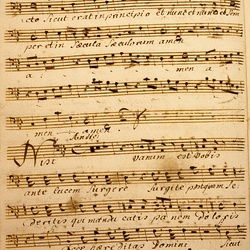 cto Sicut erat in principio et nunc et nunc et sem
per et in Sæcula Sæculorum amen
a men a
men amen
Nisi Vanum est Vobis
ante lucem Surgere Surgite postquam Se
deritis qui manducatis panem doloris
hæreditas Domini Sicut